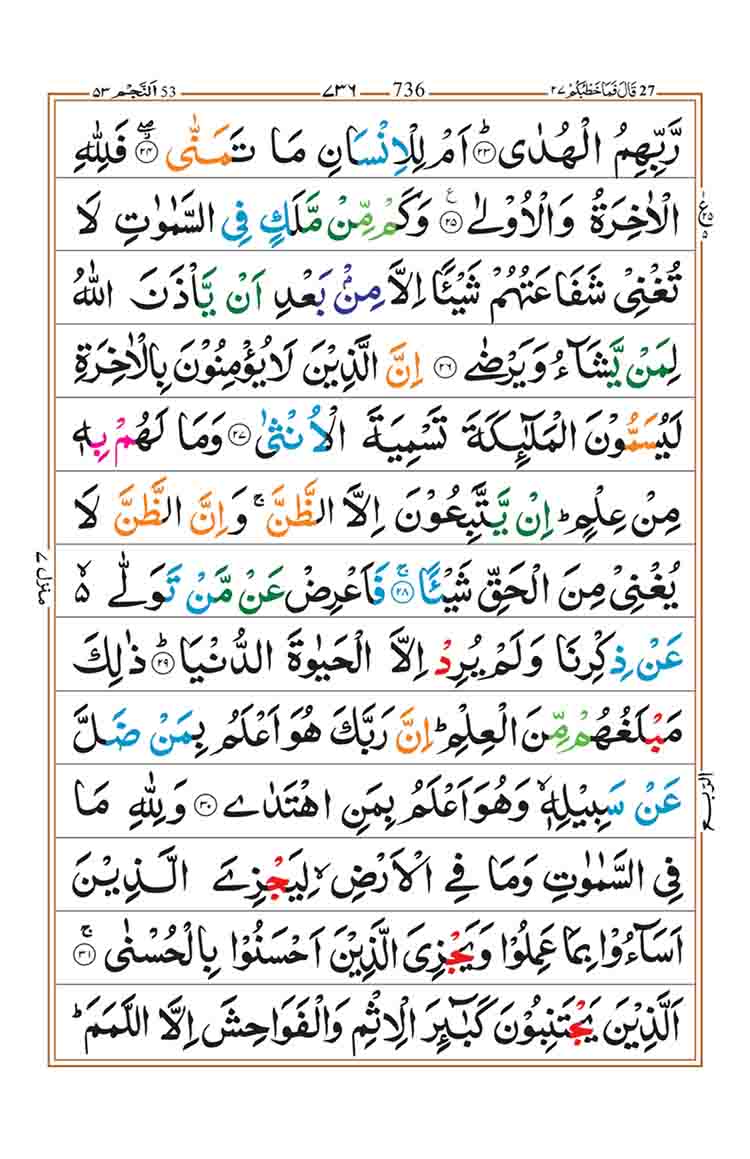 27 قَالَ فَمَا خَطْبُكُمْ ٢٧ 736 ٧٣٦ 53 اَلنَّجْم ٥٣
رَّبِّهِمُ الْهُدٰى ؕ﴿۲۳﴾ اَمْ لِلْاِنْسَانِ مَا تَمَنّٰى ۖ﴿۲۴﴾ فَلِلّٰهِ
الْاٰخِرَةُ وَالْاُوْلٰى ﴿۲۵﴾ ع وَكَمْ مِّنْ مَّلَكٍ فِى السَّمٰوٰتِ لَا
تُغْنِىْ شَفَاعَتُهُمْ شَيْـًٔا اِلَّا مِنْۢ بَعْدِ اَنْ يَّاْذَنَ اللّٰهُ
لِمَنْ يَّشَآءُ وَيَرْضٰى ﴿۲۶﴾ اِنَّ الَّذِيْنَ لَا يُؤْمِنُوْنَ بِالْاٰخِرَةِ
لَيُسَمُّوْنَ الْمَلٰٓئِكَةَ تَسْمِيَةَ الْاُنْثٰى ﴿۲۷﴾ وَمَا لَهُمْ بِهٖ
مِنْ عِلْمٍ ؕ اِنْ يَّتَّبِعُوْنَ اِلَّا الظَّنَّ ۚ وَاِنَّ الظَّنَّ لَا
يُغْنِىْ مِنَ الْحَقِّ شَيْـًٔا ۚ﴿۲۸﴾ فَاَعْرِضْ عَنْ مَّنْ تَوَلّٰى ۙ۬
عَنْ ذِكْرِنَا وَلَمْ يُرِدْ اِلَّا الْحَيٰوةَ الدُّنْيَا ؕ﴿۲۹﴾ ذٰلِكَ
مَبْلَغُهُمْ مِّنَ الْعِلْمِ ؕ اِنَّ رَبَّكَ هُوَ اَعْلَمُ بِمَنْ ضَلَّ
عَنْ سَبِيْلِهٖ ۙ وَهُوَ اَعْلَمُ بِمَنِ اهْتَدٰى ﴿۳۰﴾ وَلِلّٰهِ مَا
فِى السَّمٰوٰتِ وَمَا فِى الْاَرْضِ ۙ لِيَجْزِىَ الَّذِيْنَ
اَسَآءُوْا بِمَا عَمِلُوْا وَيَجْزِىَ الَّذِيْنَ اَحْسَنُوْا بِالْحُسْنٰى ۚ﴿۳۱﴾
اَلَّذِيْنَ يَجْتَنِبُوْنَ كَبٰٓئِرَ الْاِثْمِ وَالْفَوَاحِشَ اِلَّا اللَّمَمَ ؕ
ع ٢٥ ٥
الربع
منزل ٧